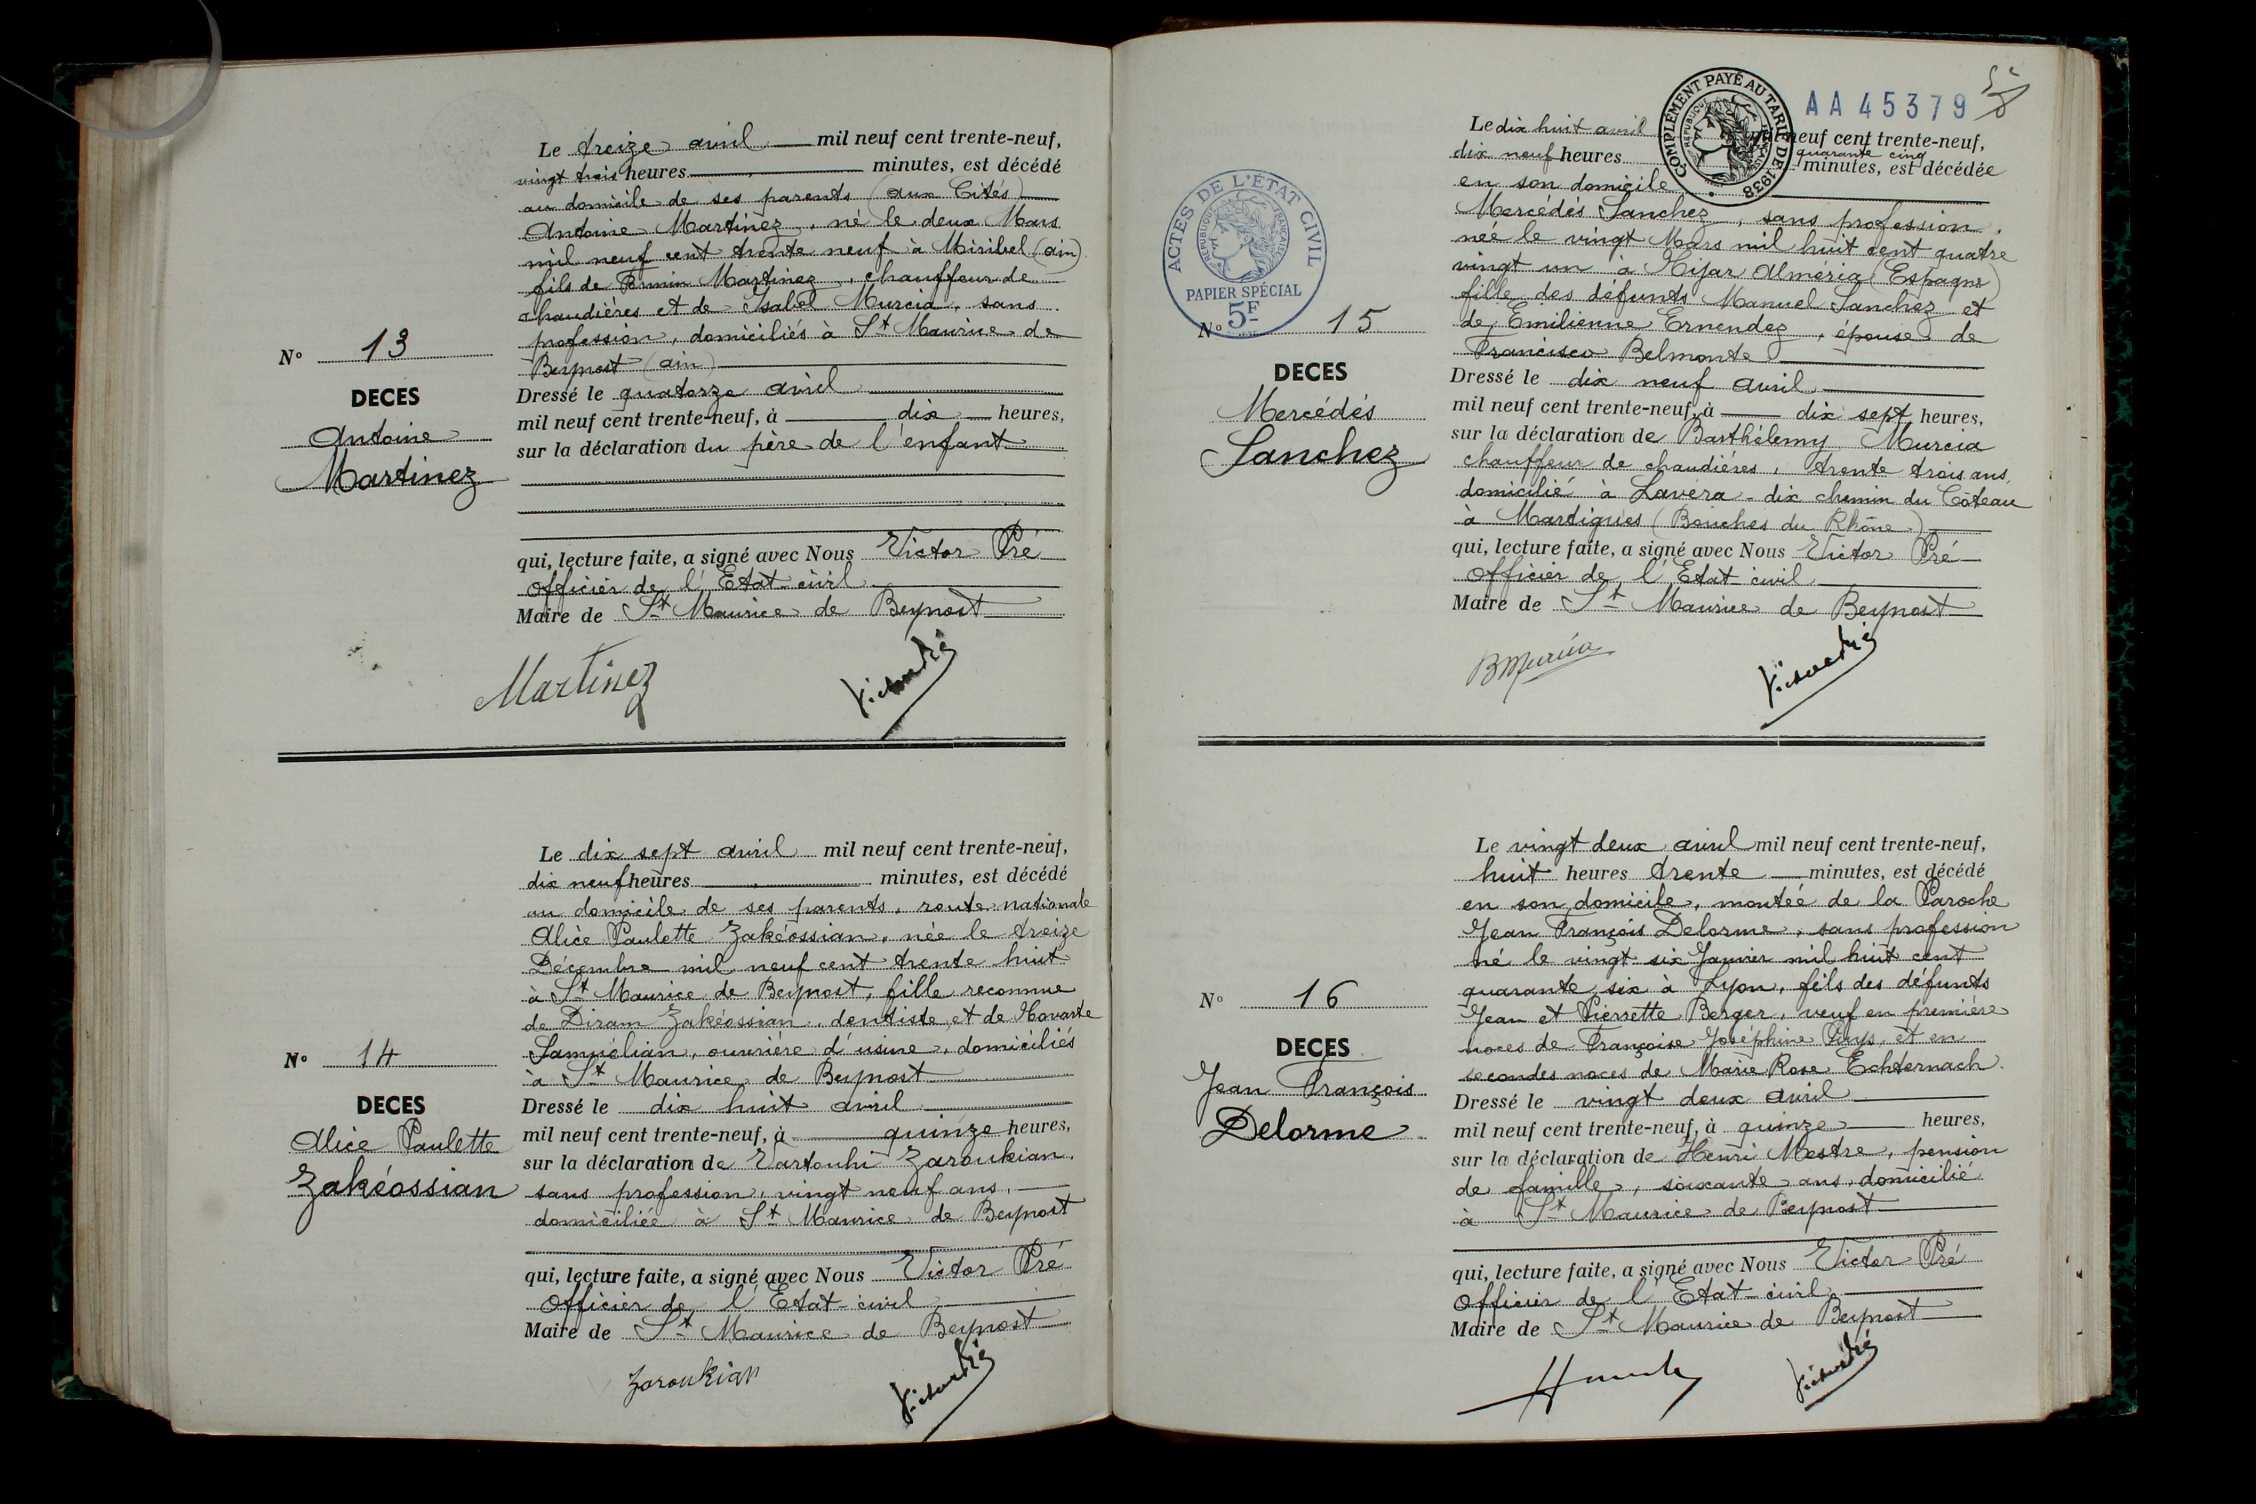 Le treize avril mil neuf cent trente-neuf,
vingt trois heures minutes, est décédé
au domicile de ses parents (aux Cités)
Antoine Martinez, né le deux Mars
mil neuf cent trente neuf à Miribel (ain)
fils de Fermin Martinez, chauffeur de
chaudières et de Isabel Murcia, sans
profession, domiciliés à St Maurice de
Beynost (ain)
N° 13
DECES
Antoine
Martinez
Dressé le quatorze avril
mil neuf cent trente-neuf, à dix heures,
sur la déclaration du père de l'enfant
qui, lecture faite, a signé avec Nous Victor Pré
Officier de l'Etat-civil
Maire de St Maurice de Beynost
Martinez
Victor Pré
Le dix sept avril mil neuf cent trente-neuf,
dix neuf heures minutes, est décédé
au domicile de ses parents, route nationale
Alice Paulette Zakéossian, née le treize
Décembre mil neuf cent trente huit
à St Maurice de Beynost, fille reconnue
de Diram Zakéossian, dentiste, et de Hovarte
Samuélian, ouvrière d'usine, domiciliés
à St Maurice de Beynost
N° 14
DECES
Alice Paulette
Zakéossian
Dressé le dix huit avril
mil neuf cent trente-neuf, à quinze heures,
sur la déclaration de Vartouhi Zaroukian,
sans profession, vingt neuf ans,
domiciliée à St Maurice de Beynost
qui, lecture faite, a signé avec Nous Victor Pré
Officier de l'Etat-civil
Maire de St Maurice de Beynost
Zaroukian
Victor Pré
AA 45379
58
COMPLÉMENT PAYÉ AU TARIF DE 1938
RÉPUBLIQUE FRANÇAISE
Le dix huit avril mil neuf cent trente-neuf,
dix neuf heures quarante cinq minutes, est décédée
en son domicile
Mercédés Sanchez, sans profession,
née le vingt Mars mil huit cent quatre
vingt un à Nijar Alméria (Espagne)
fille des défunts Manuel Sanchez et
de Emilienne Ernendez, épouse de
Francisco Belmonte
ACTES DE L'ÉTAT CIVIL
RÉPUBLIQUE FRANÇAISE
PAPIER SPÉCIAL
5F
N° 15
DECES
Mercédés
Sanchez
Dressé le dix neuf avril
mil neuf cent trente-neuf, à dix sept heures,
sur la déclaration de Barthélemy Murcia
chauffeur de chaudières, trente trois ans,
domicilié à Lavéra - dix chemin du Côteau
à Martigues (Bouches du Rhône)
qui, lecture faite, a signé avec Nous Victor Pré
Officier de l'Etat civil
Maire de St Maurice de Beynost
B Murcia
Victor Pré
Le vingt deux avril mil neuf cent trente-neuf,
huit heures trente minutes, est décédé
en son domicile, montée de la Paroche
Jean François Delorme, sans profession
né le vingt six Janvier mil huit cent
quarante six à Lyon, fils des défunts
Jean et Pierrette Berger, veuf en première
noces de Françoise Joséphine Puys, et en
secondes noces de Marie Rose Echternach.
N° 16
DECES
Jean François
Delorme
Dressé le vingt deux avril
mil neuf cent trente-neuf, à quinze heures,
sur la déclaration de Henri Mestre, pension
de famille, soixante ans, domicilié
à St Maurice de Beynost
qui, lecture faite, a signé avec Nous Victor Pré
Officier de l'Etat-civil
Maire de St Maurice de Beynost
Victor Pré